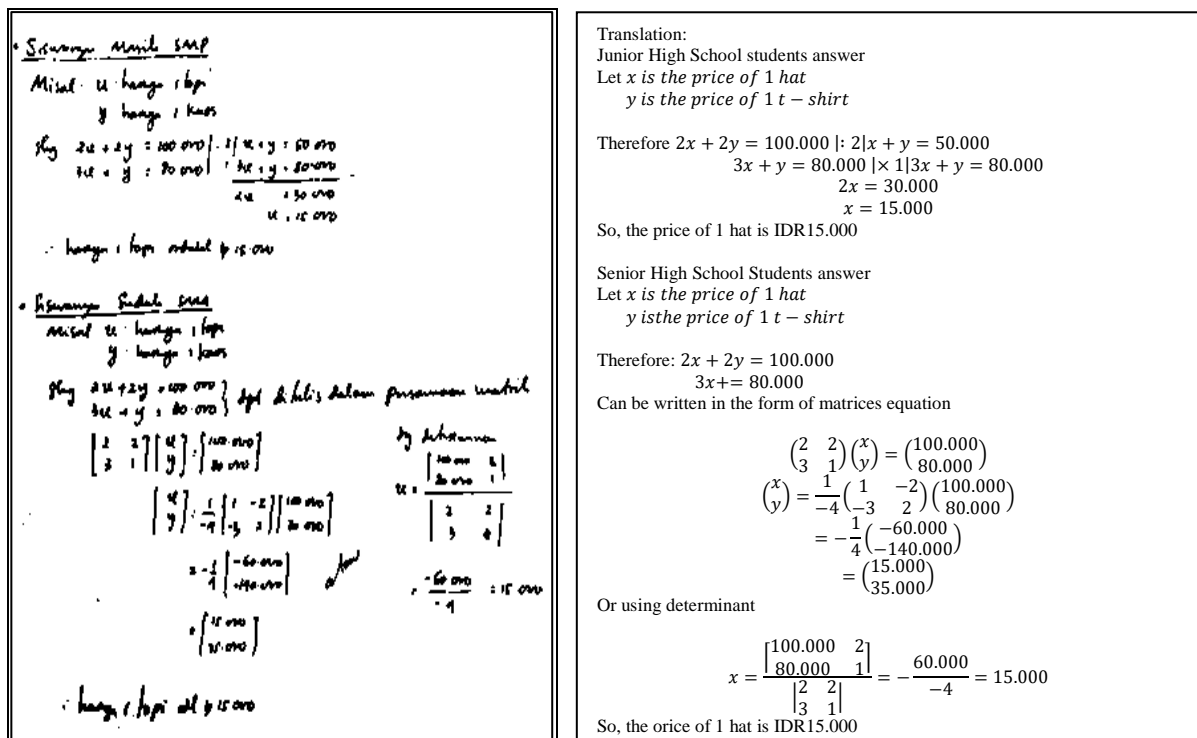 • Siswanya Masih SMP
Misal u harga 1 topi
y harga 1 kaos
shg 2u + 2y = 100.000 | : 2 | u + y = 50.000
3u + y = 80.000 | 3u + y = 80.000
2u = 30.000
u = 15.000
∴ harga 1 topi adalah 15.000
• Siswanya Sudah SMA
Misal u harga 1 topi
y harga 1 kaos
shg 2u + 2y = 100.000
3u + y = 80.000 } dpt ditulis dalam persamaan
[2 2; 3 1] [u; y] = [100.000; 80.000]
[u; y] = 1/-4 [1 -2; -3 2] [100.000; 80.000]
= -1/4 [-60.000; -140.000]
= [15.000; 35.000]
dg
u = |100.000 2; 80.000 1| / |2 2; 3
= -60.000/-4 = 15.000
∴ harga 1 topi adl 15.000
Translation:
Junior High School students answer
Let x is the price of 1 hat
y is the price of 1 t − shirt
Therefore 2x + 2y = 100.000 |: 2|x + y = 50.000
3x + y = 80.000 |× 1|3x + y = 80.000
2x = 30.000
x = 15.000
So, the price of 1 hat is IDR15.000
Senior High School Students answer
Let x is the price of 1 hat
y isthe price of 1 t − shirt
Therefore: 2x + 2y = 100.000
3x+= 80.000
Can be written in the form of matrices equation
(2 2; 3 1)(x; y) = (100.000; 80.000)
(x; y) = 1/-4 (1 −2; −3 2)(100.000; 80.000)
= −1/4 (−60.000; −140.000)
= (15.000; 35.000)
Or using determinant
x = |100.000 2; 80.000 1| / |2 2; 3 1| = − 60.000/−4 = 15.000
So, the orice of 1 hat is IDR15.000